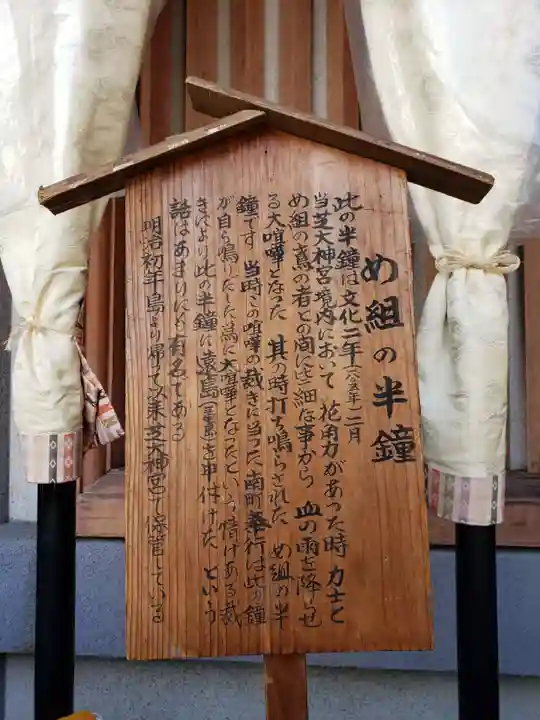 め組の半鐘
此の半鐘は文化二年(一八〇五年)二月
当芝大神宮境内において 花角力があった時 力士と
め組の鳶の者との間に些細な事から 血の雨を降らせ
る大喧嘩となった 其の時打ち鳴らされた め組の半
鐘です 当時この喧嘩の裁きに当った南町奉行は此の鐘
が自ら鳴りだした為に大喧嘩となったという情けある裁
きにより此の半鐘に遠島(三宅島)を申付けた という
話はあまりにも有名である
明治初年 島より帰って以来芝大神宮で保管している